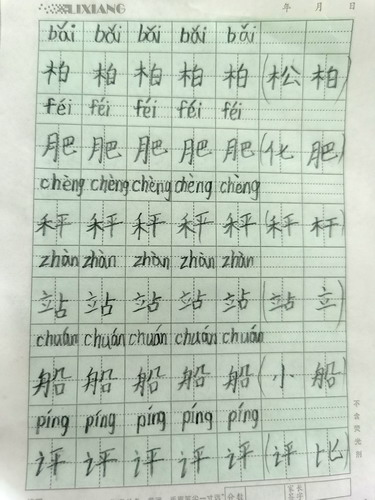 LIXIANG 年 月 日
bǎi bǎi bǎi bǎi bǎi
柏 柏 柏 柏 柏 (松 柏)
féi féi féi féi féi
肥 肥 肥 肥 肥 (化 肥)
chèng chèng chèng chèng chèng
秤 秤 秤 秤 秤 (秤 杆)
zhàn zhàn zhàn zhàn zhàn
站 站 站 站 站 (站 立)
chuán chuán chuán chuán chuán
船 船 船 船 船 (小 船)
píng píng píng píng píng
评 评 评 评 评 (评 比)
不含荧光剂
分数
家长
签字